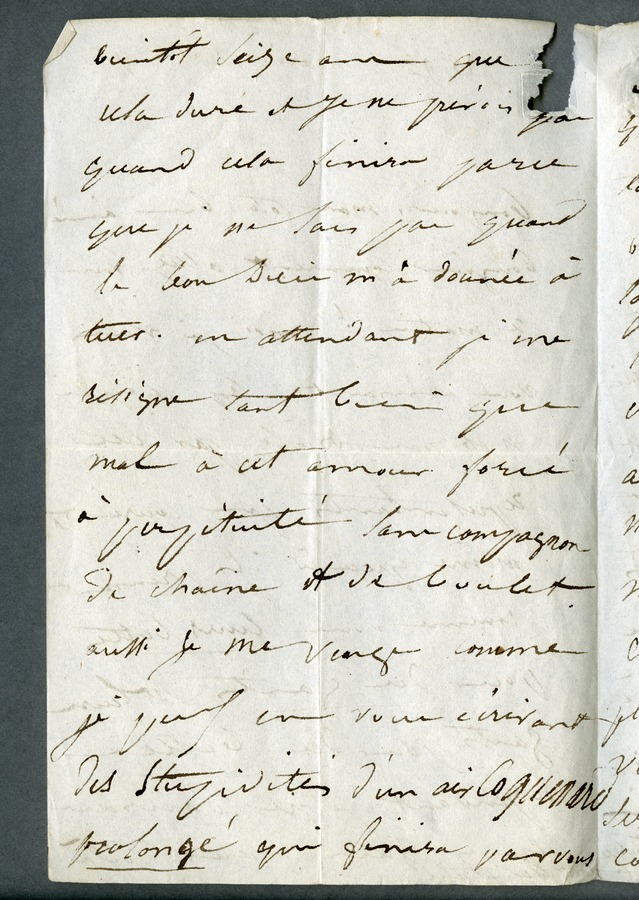 bientôt seize ans que
cela dure et je ne prévois pas
quand cela finira parce
que je ne sais pas quand
le bon Dieu m'a donnée à
tuer. en attendant je me
résigne tant bien que
mal à cet amour forcé
à perpétuité sans compagnon
de chaîne et de boulet
aussi je me venge comme
je peux en vous écrivant
des stupidités d'un air Coquenard
prolongé qui finira par vous